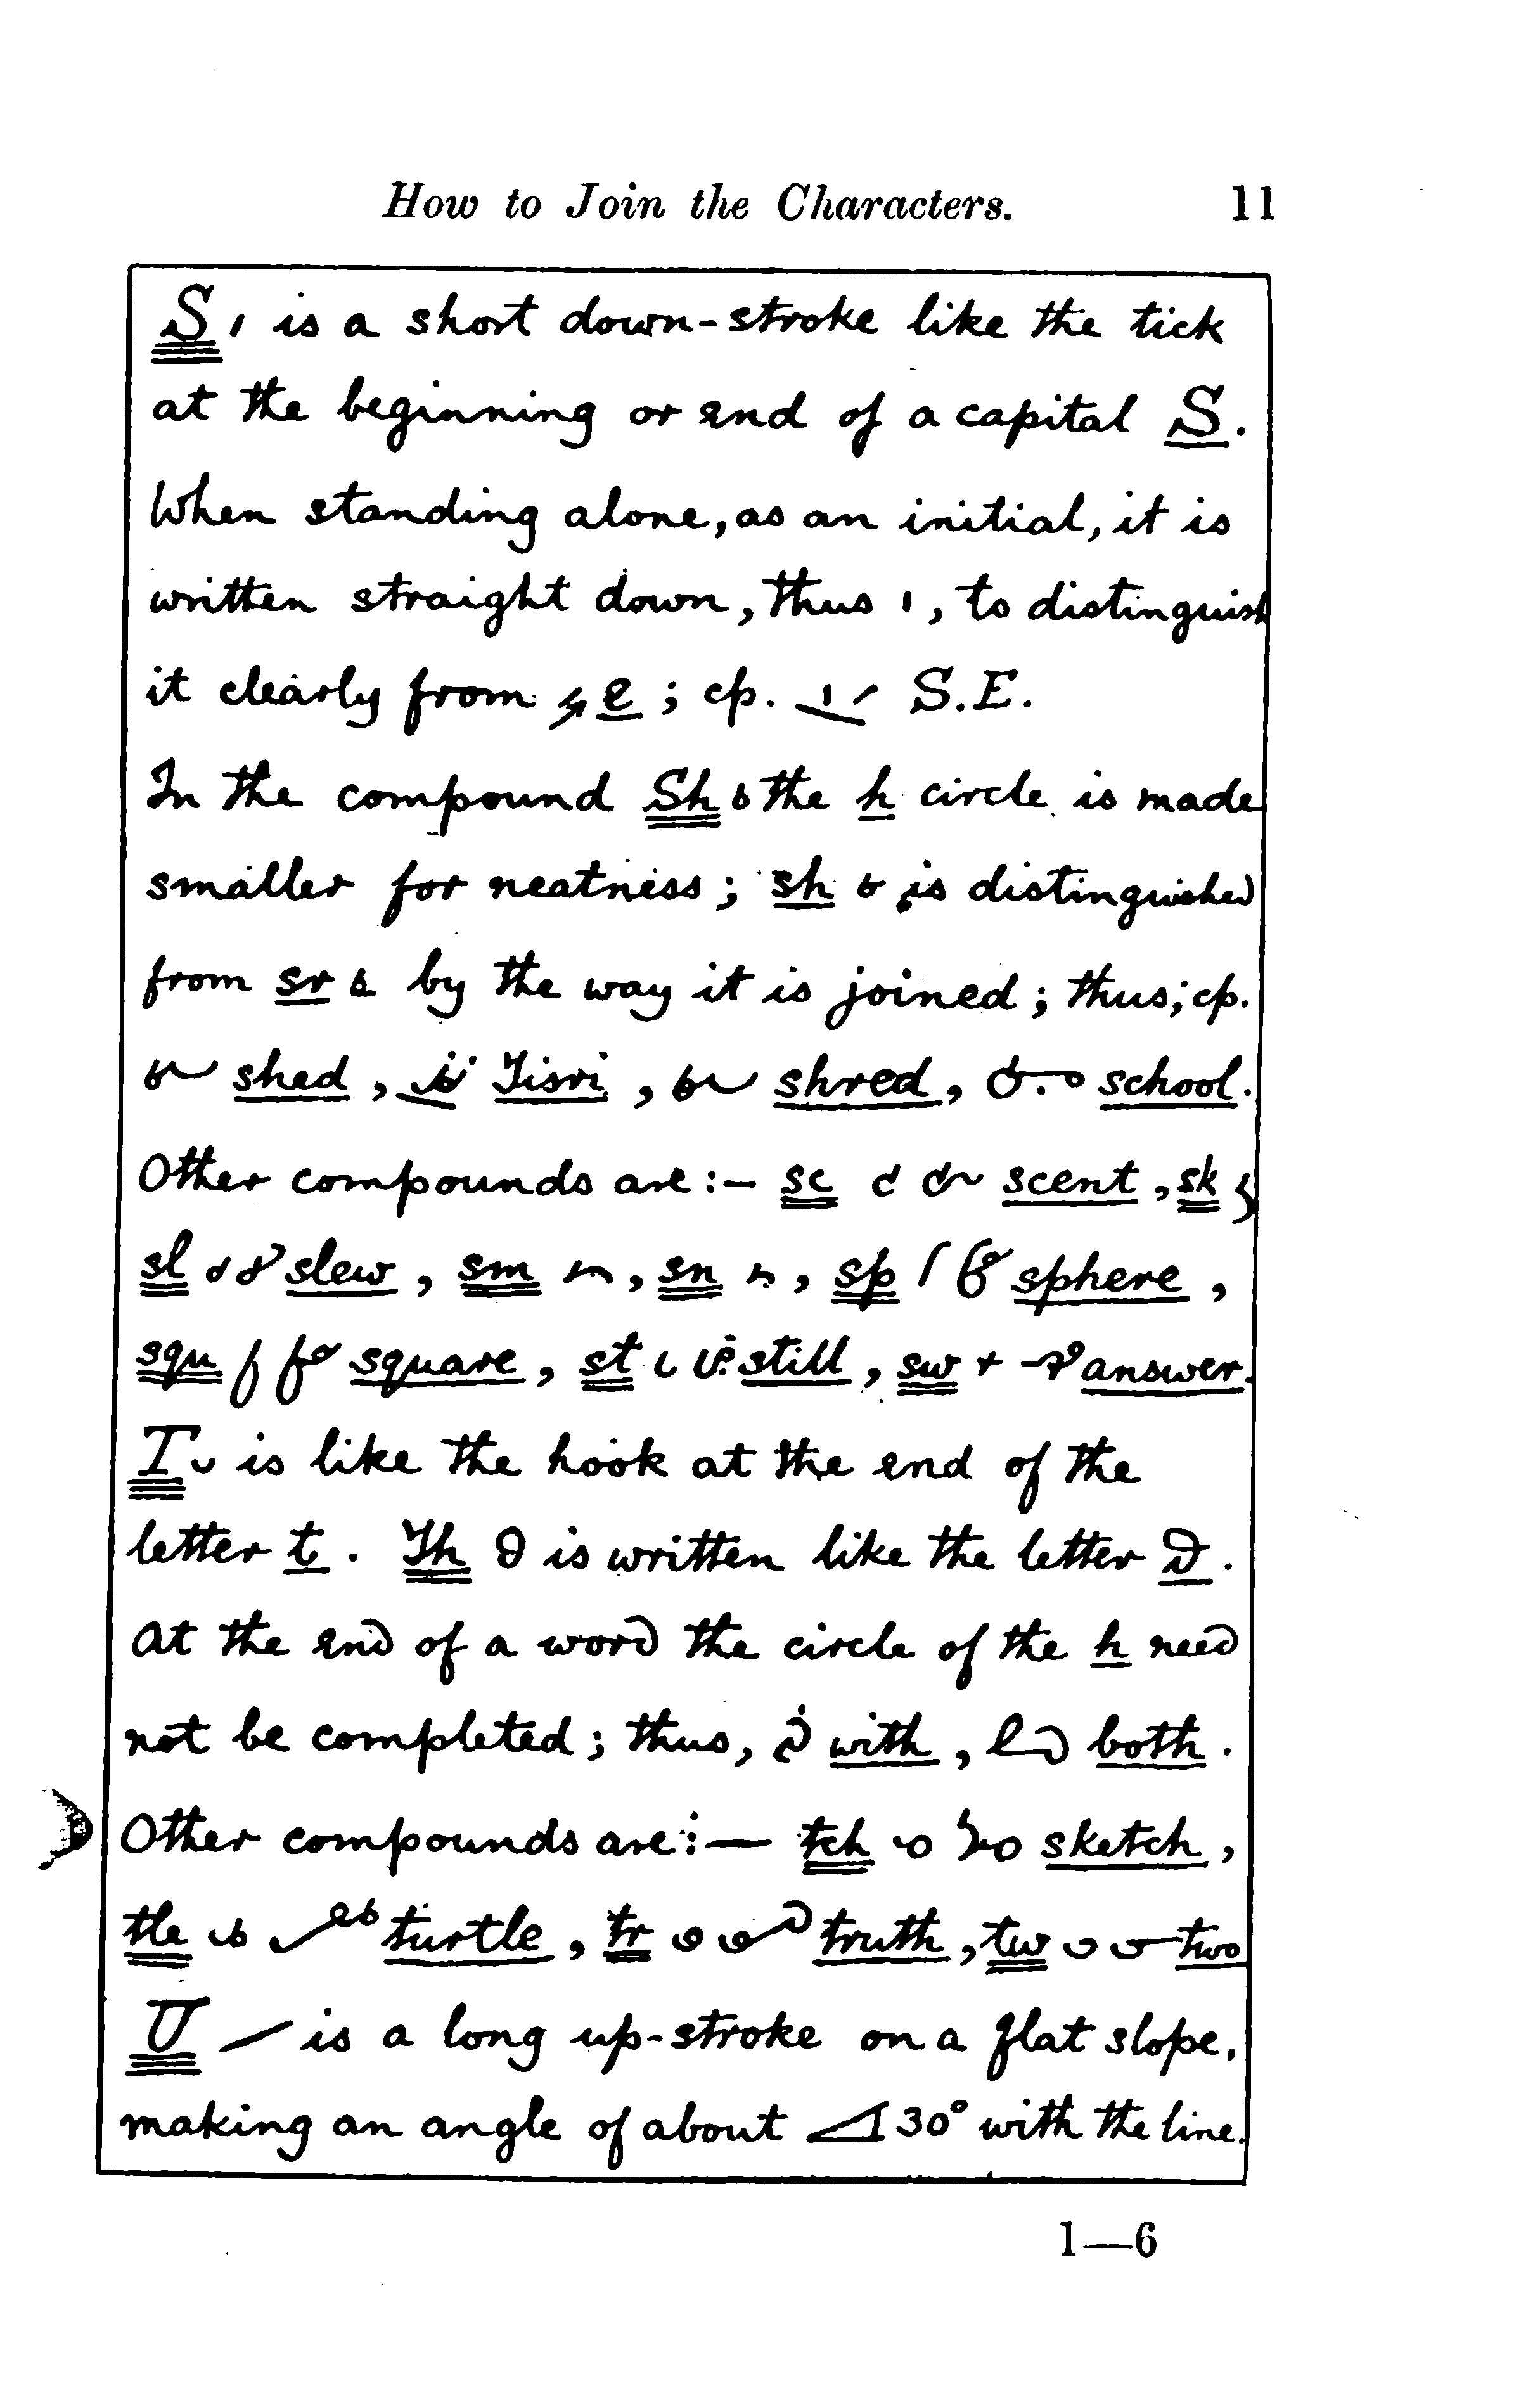 How to Join the Characters. 11
S is a short down-stroke like the tick
at the beginning or end of a capital S.
When standing alone, as an initial, it is
written straight down, thus , to distinguish
it clearly from e ; cp. S.E.
In the compound Sh the h circle is made
smaller for neatness ; sh is distinguished
from sr by the way it is joined ; thus; cp.
shed , Tisri , shred , school .
Other compounds are :— sc scent , sk
sl slew , sm , sn , sp sphere ,
squ square , st still , sw answer.
T is like the hook at the end of the
letter t . Th is written like the letter D .
At the end of a word the circle of the h need
not be completed ; thus, with , both .
Other compounds are :— tch sketch ,
tle turtle , tr truth , tw two
U is a long up-stroke on a flat slope,
making an angle of about 30° with the line.
1—6